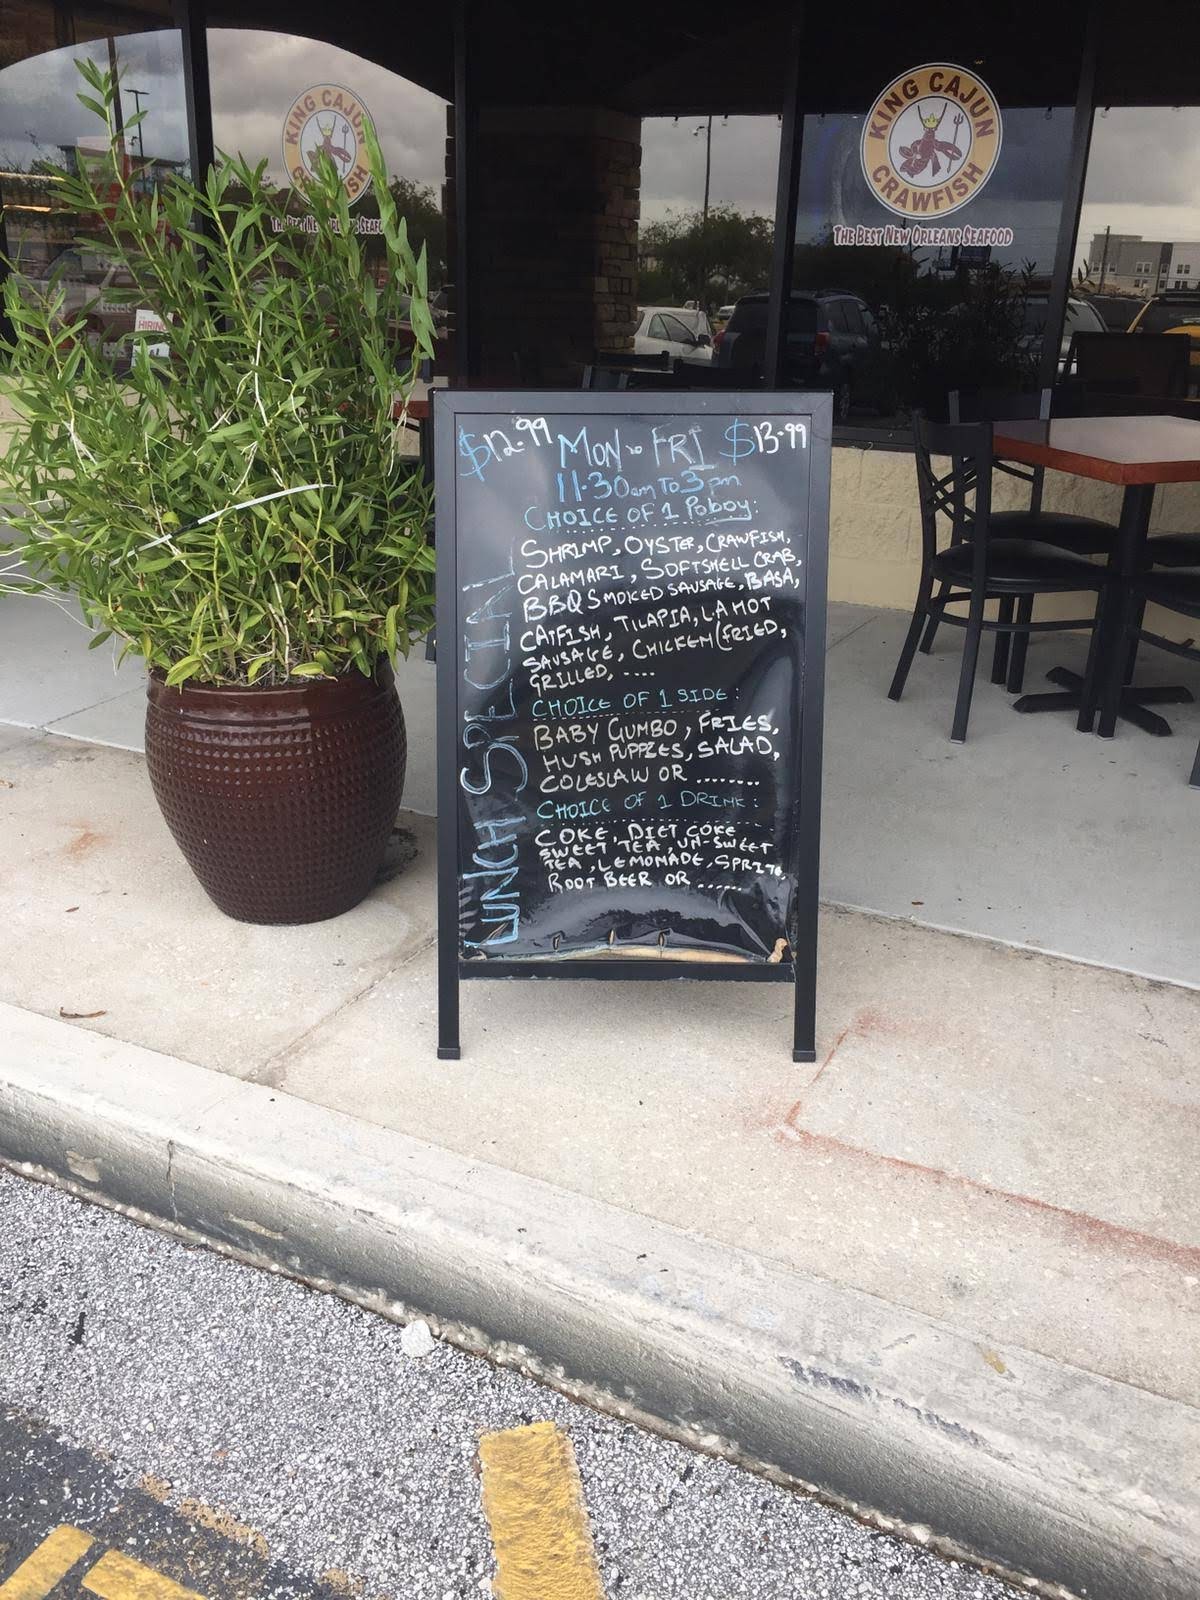 KING CAJUN
CRAWFISH
KING CAJUN
CRAWFISH
THE BEST NEW ORLEANS SEAFOOD
HIRING
$12.99 MON to FRI $13.99
11.30am To 3 pm
CHOICE OF 1 Poboy:
SHRIMP, OYSTER, CRAWFISH,
CALAMARI, SOFTSHELL CRAB,
BBQ SMOKED SAUSAGE, BASA,
CATFISH, TILAPIA, LA HOT
SAUSAGE, CHICKEN (FRIED,
GRILLED, ....
CHOICE OF 1 SIDE:
BABY GUMBO, FRIES,
HUSH PUPPIES, SALAD,
COLESLAW OR ........
CHOICE OF 1 DRINK:
COKE, DIET COKE
SWEET TEA, UN-SWEET
TEA, LEMONADE, SPRITE,
ROOT BEER OR ......
LUNCH SPECIAL